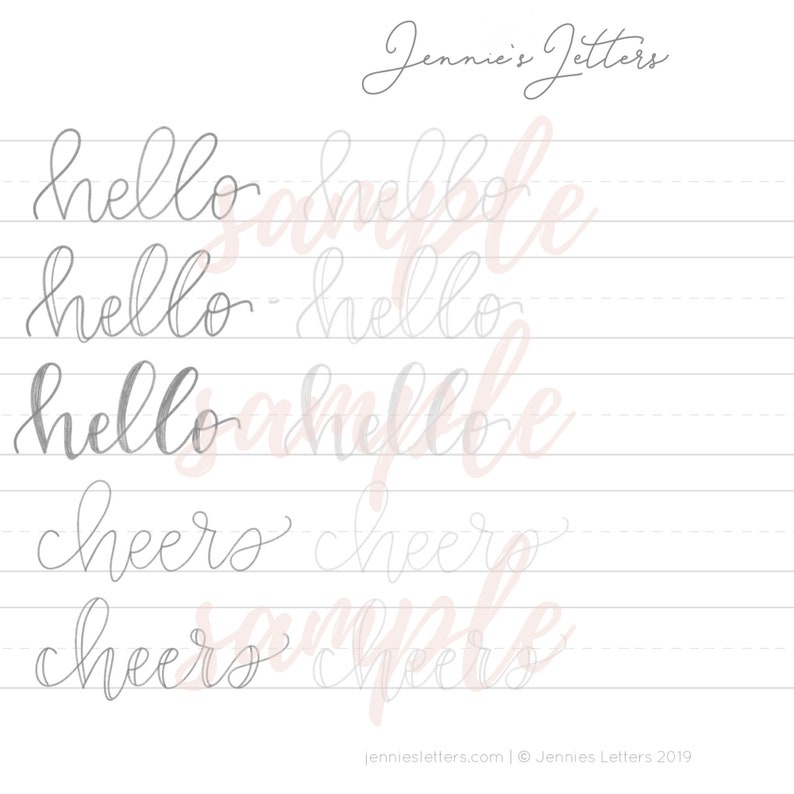 Jennie's Letters
hello hello
sample
hello hello
hello hello
sample
cheers cheers
cheers cheers
sample
jenniesletters.com | © Jennies Letters 2019